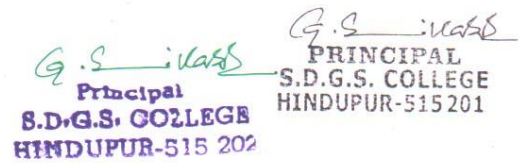 G. S
Principal
S.D.G.S. COLLEGE
HINDUPUR-515 202
G. S
PRINCIPAL
S.D.G.S. COLLEGE
HINDUPUR-515201